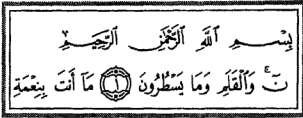 بِسْمِ ٱللَّهِ ٱلرَّحْمَٰنِ ٱلرَّحِيمِ
نٓ ۚ وَٱلْقَلَمِ وَمَا يَسْطُرُونَ ۝١ مَآ أَنتَ بِنِعْمَةِ